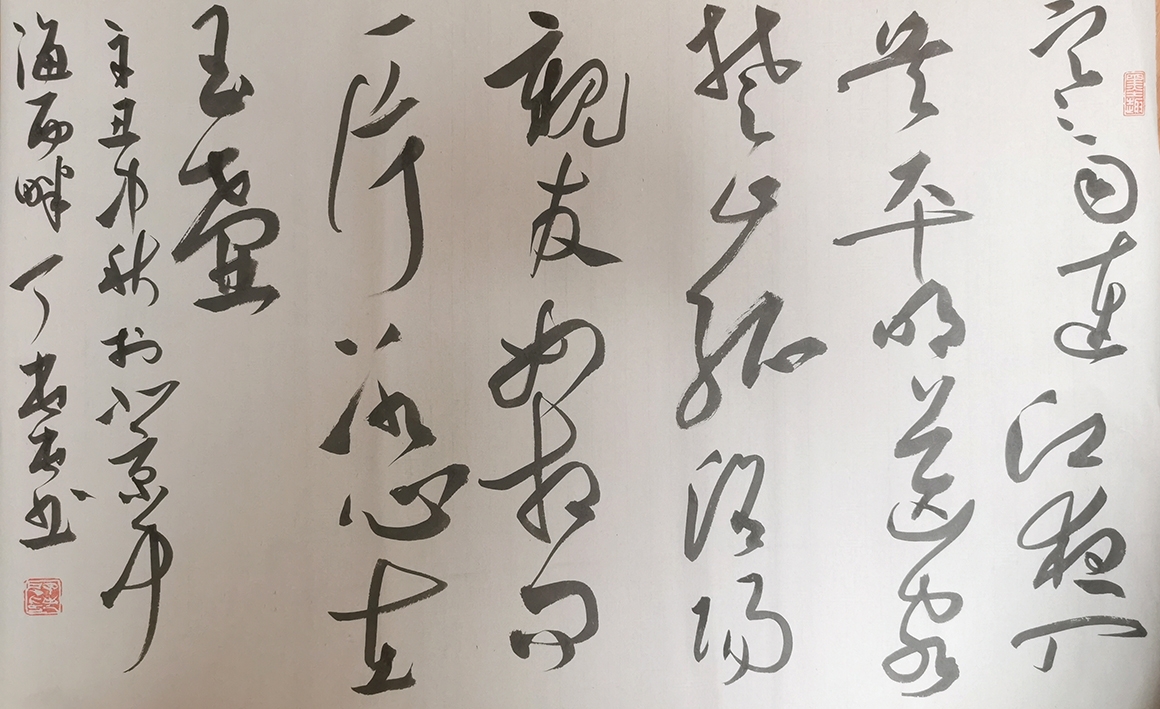 寒雨連江夜入
吴平明送客
楚山孤洛陽
親友如相问
一片冰心在
玉壺
辛丑中秋於北京中
海西畔丁书